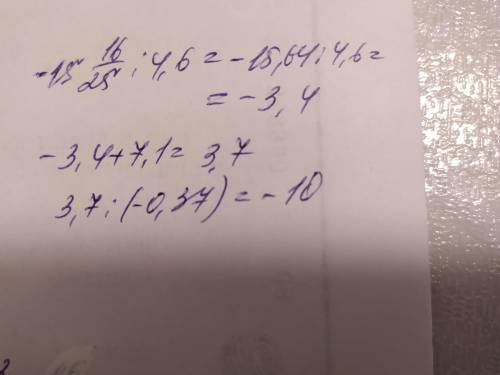 -15 16/25 : 4,6 = -15,64 : 4,6 =
= -3,4
-3,4+7,1= 3,7
3,7 : (-0,37) = -10